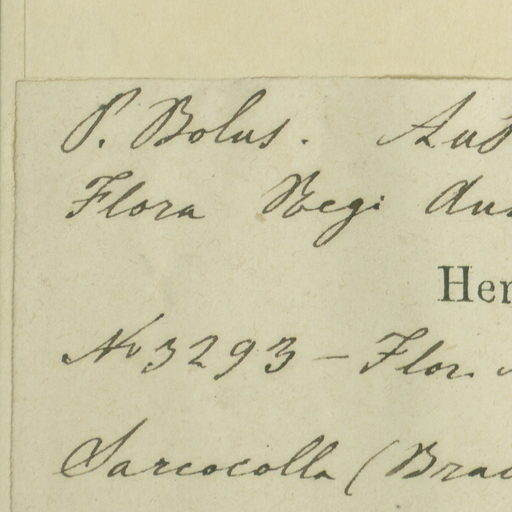 P. Bolus. Aus
Flora Regi Aus
Her
No 3293 – Flor.
Sarcocolla (Brac